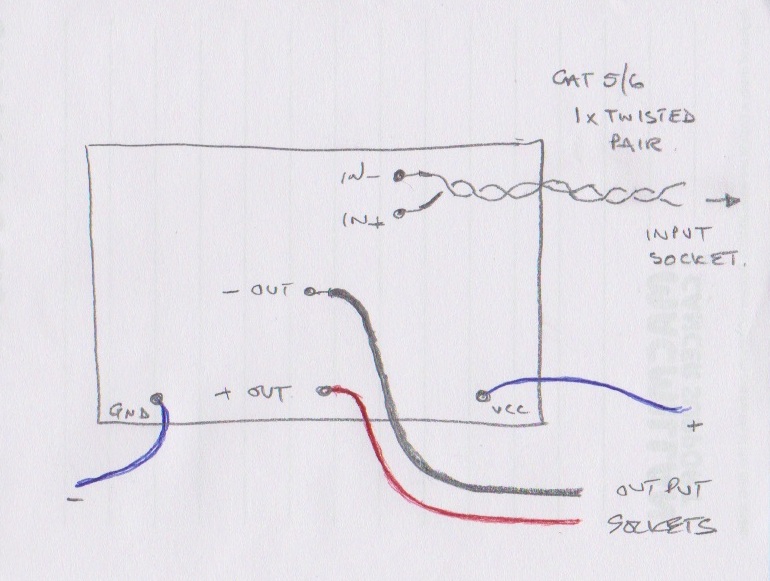 CAT 5/6
1 x TWISTED
PAIR.
IN-
IN+
INPUT
SOCKET.
- OUT
+ OUT
GND
VCC
+
-
OUTPUT
SOCKETS